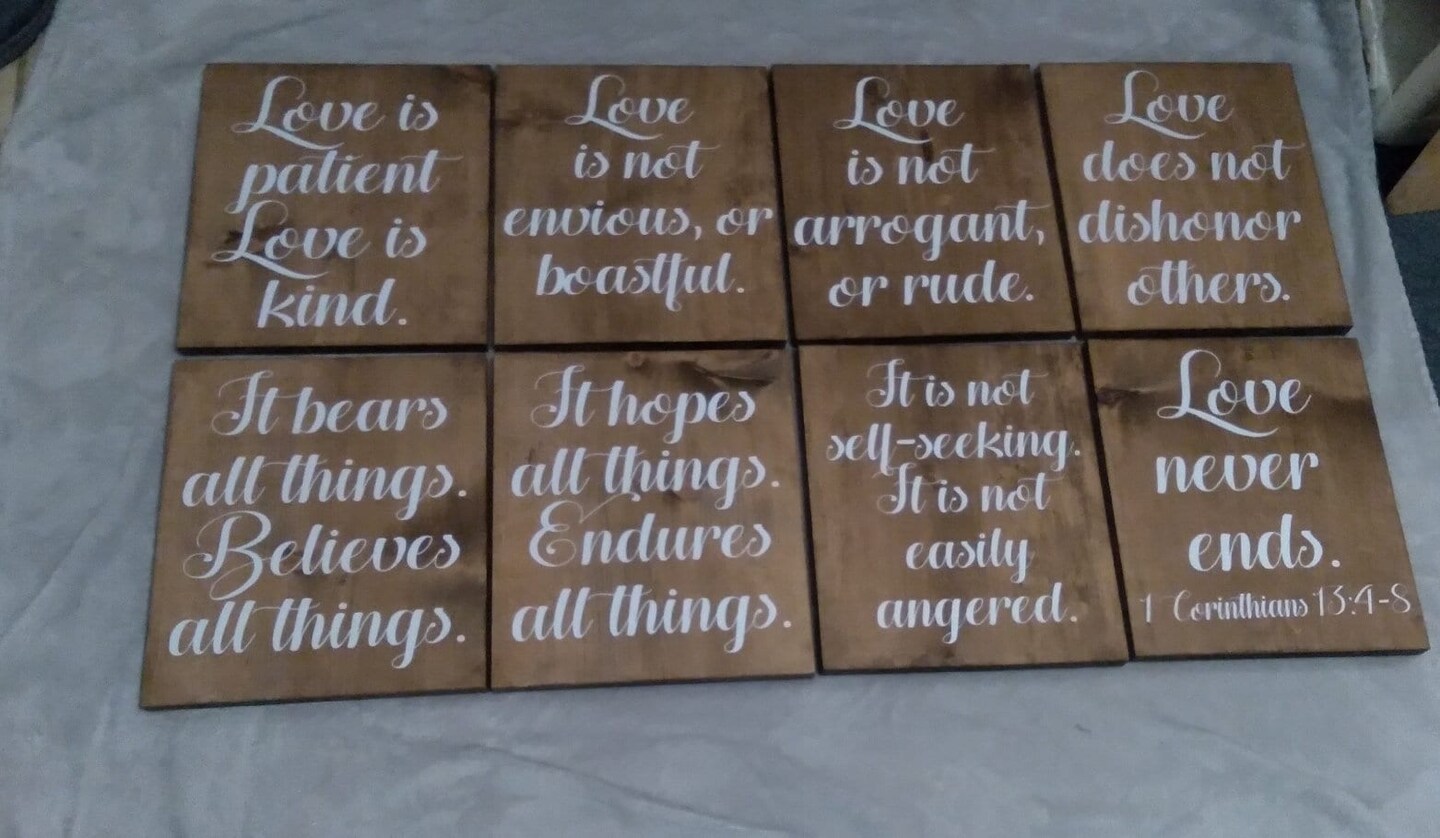 Love is
patient
Love is
kind.
Love
is not
envious, or
boastful.
Love
is not
arrogant,
or rude.
Love
does not
dishonor
others.
It bears
all things.
Believes
all things.
It hopes
all things.
Endures
all things.
It is not
self-seeking.
It is not
easily
angered.
Love
never
ends.
1 Corinthians 13:4-8